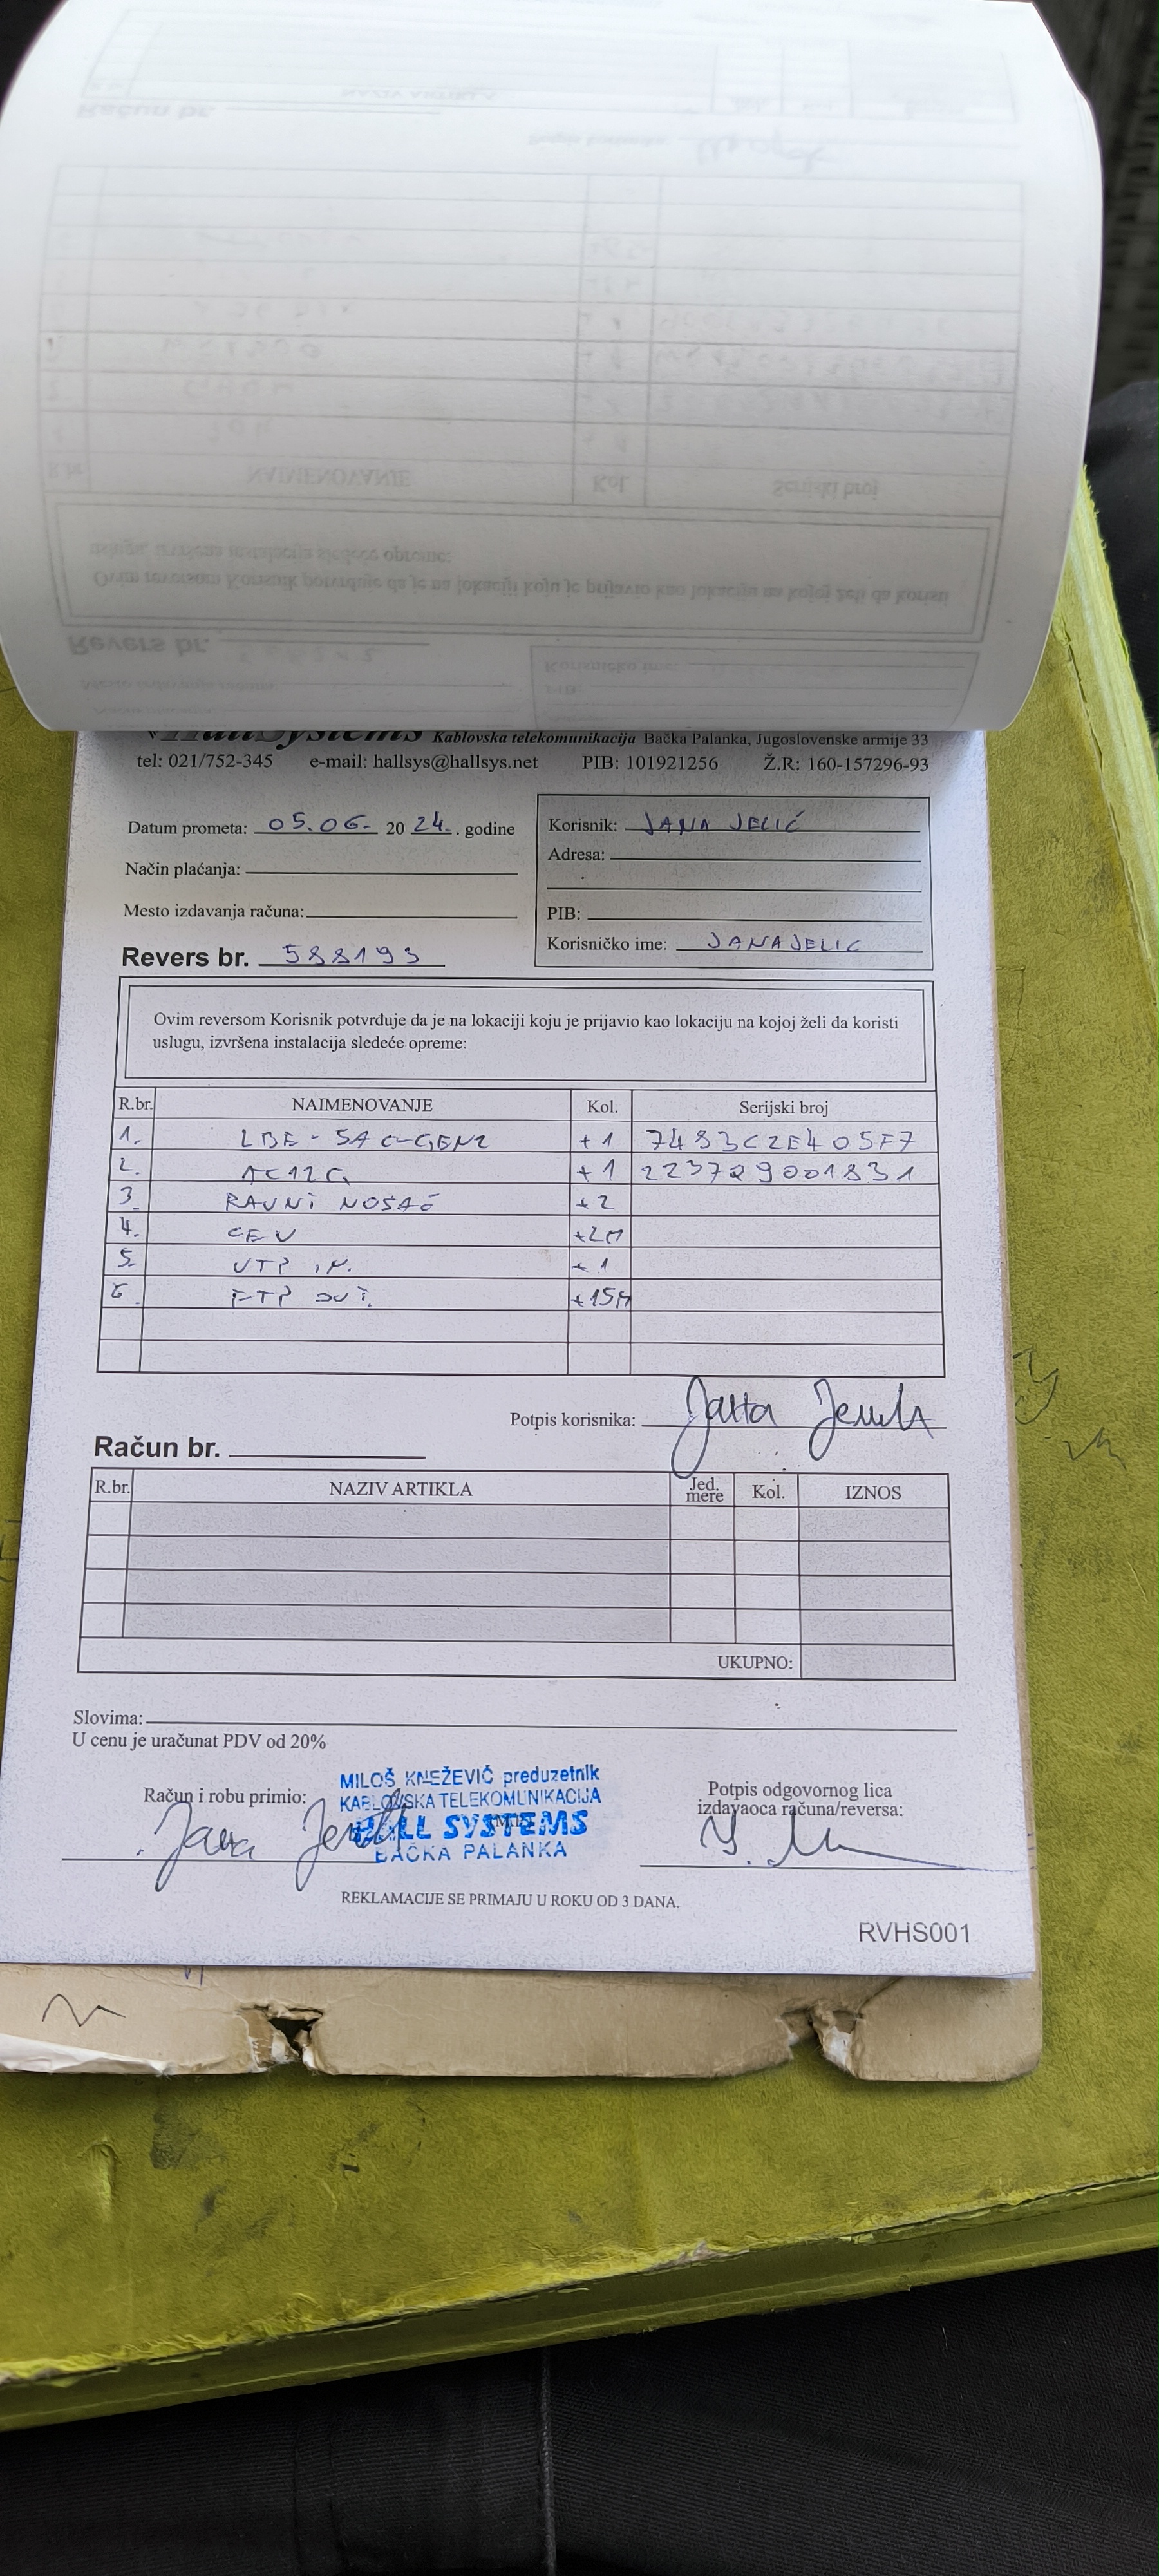 HallSystems Kablovska telekomunikacija Bačka Palanka, Jugoslovenske armije 33
tel: 021/752-345 e-mail: hallsys@hallsys.net PIB: 101921256 Ž.R: 160-157296-93
Datum prometa: 05.06. 20 24. . godine
Korisnik: JANA JELIĆ
Adresa:
Način plaćanja:
Mesto izdavanja računa:
PIB:
Korisničko ime: JANAJELIC
Revers br. 588193
Ovim reversom Korisnik potvrđuje da je na lokaciji koju je prijavio kao lokaciju na kojoj želi da koristi
uslugu, izvršena instalacija sledeće opreme:
R.br. NAIMENOVANJE Kol. Serijski broj
1. LBE-5AC-GEN2 +1 7483C2E405F7
2. AC12G +1 2237290001831
3. RAVNI NOSAČ +2
4. CEV +2M
5. UTP IN. +1
6. FTP OUT. +15M
Potpis korisnika: Jana
Račun br.
R.br. NAZIV ARTIKLA Jed. mere Kol. IZNOS
UKUPNO:
Slovima:
U cenu je uračunat PDV od 20%
Račun i robu primio: Jana
MILOŠ KNEŽEVIĆ preduzetnik
KABLOVSKA TELEKOMUNIKACIJA
HALL SYSTEMS
BAČKA PALANKA
Potpis odgovornog lica
izdavaoca računa/reversa:
REKLAMACIJE SE PRIMAJU U ROKU OD 3 DANA.
RVHS001